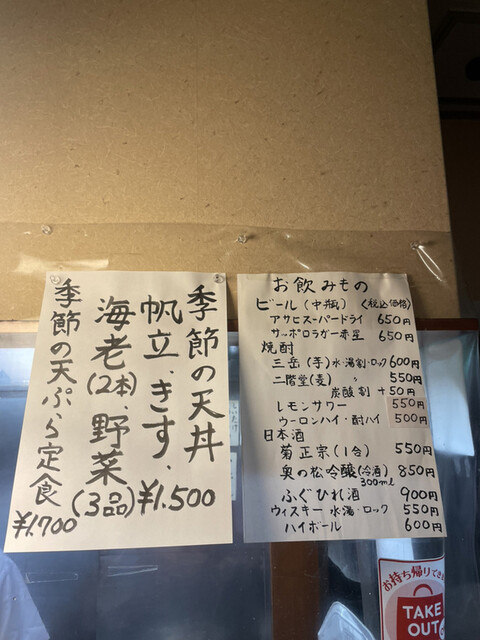 季節の天丼
帆立.きす、
海老(2本).野菜
(3品)¥1.500
季節の天ぷら定食
¥1.700
お飲みもの
ビール(中瓶) 〈税込価格〉
アサヒスーパードライ 650円
サッポロラガー赤星 650円
焼酎
三岳(芋)水・湯割・ロック 600円
二階堂(麦) 〃 550円
炭酸割 +50円
レモンサワー 550円
ウーロンハイ・酎ハイ 500円
日本酒
菊正宗(1合) 550円
奥の松吟醸(冷酒) 850円
300ml
ふぐひれ酒 900円
ウィスキー 水湯・ロック 550円
ハイボール 600円
お持ち帰りでき
TAKE
OUT